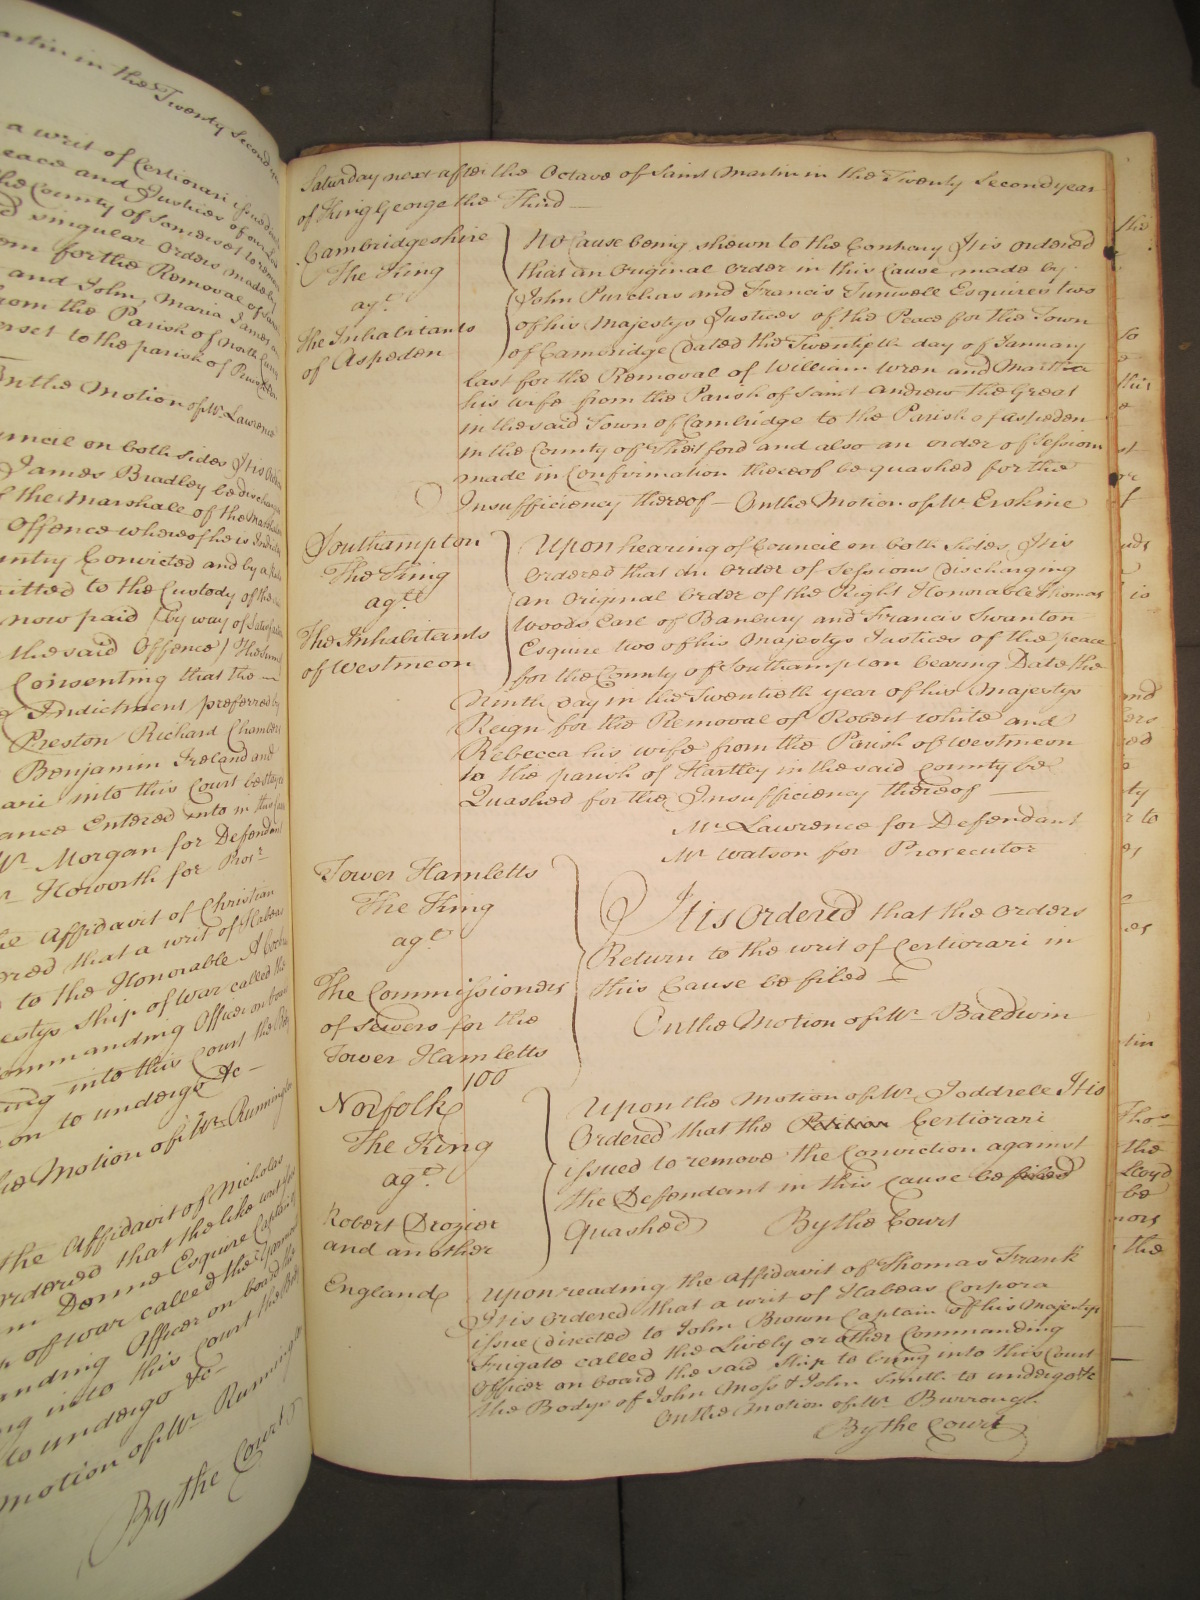 artin in the Twenty Second
a writ of Certiorari issued
eace and Justices of our Lord
the County of Somerset to remove
d singular Orders made by
om for the Removal of
and John, Maria James
from the Parish of North
erset to the parish of
On the Motion of Mr. Lawrence
uncil on both sides It is
James Bradley be discharged
f the Marshall of the
Offence whereof he is
untry Convicted and by a
mitted to the Custody of the
now paid (by way of
the said Offence) the Sum
Consenting that the
Indictment preferred by
Preston Richard Chambers
Benjamin Ireland and
ari into this Court be
zance Entered into in this
Mr. Morgan for Defendant
Howorth for Prosr.
he Affidavit of Christian
dred that a writ of Habeas
to the Honorable
estys Ship of War called the
ommanding Officer on board
ing into this Court the
on to undergo &c
he Motion of Mr. Runnington
the Affidavit of Nicholas
rdered that the like writ
m Donne Esquire Captain of
p of war called the
anding Officer on board the
ng into this Court the
to undergo &c
motion of Mr. Runnington
By the Court
Saturday next after the Octave of Saint Martin in the Twenty Second year
of King George the Third
Cambridgeshire
The King
agt.
The Inhabitants
of Aspeden
No Cause being shewn to the Contrary It is ordered
that an Original Order in this Cause made by
John Purchas and Francis Tunwell Esquires two
of his Majestys Justices of the Peace for the Town
of Cambridge Dated the Twentieth day of January
last for the Removal of William Wren and Martha
his wife from the Parish of Saint Andrew the Great
in the said Town of Cambridge to the Parish of Aspeden
in the County of and also an order of Sessions
made in Confirmation thereof be quashed for the
Insufficiency thereof – On the Motion of Mr. Erskine
Southampton
The King
agt.
The Inhabitants
of Westmeon
Upon hearing of Council on both sides It is
Ordered that an Order of Sessions discharging
an Original Order of the Right Honorable Thomas
Woods Earl of Banbury and Francis Swanton
Esquire two of his Majestys Justices of the peace
for the County of Southampton bearing Date the
Ninth day in the Twentieth year of his Majestys
Reign for the Removal of Robert White and
Rebecca his wife from the Parish of Westmeon
to the parish of Hartley in the said County be
Quashed for the Insufficiency thereof
Mr. Lawrence for Defendant
Mr. Watson for Prosecutor
Tower Hamletts
The King
agt.
The Commissioners
of Sewers for the
Tower Hamletts
It is Ordered that the Orders
Return to the writ of Certiorari in
this Cause be filed
On the Motion of Mr. Baldwin
100
Norfolk
The King
agt.
Robert Drozier
and another
Upon the Motion of Mr. Joddrell It is
Ordered that the Petition Certiorari
issued to remove the Conviction against
the Defendant in this cause be filed
Quashed By the Court
England
Upon reading the Affidavit of Thomas Frank
It is Ordered that a writ of Habeas Corpora
issue directed to John Brown Captain of his Majestys
Frigate called the Lively or other Commanding
Officer on board the said Ship to bring into this Court
the Bodys of John Moss & John Smith to undergo &c
On the Motion of Mr. Burrough
By the Court